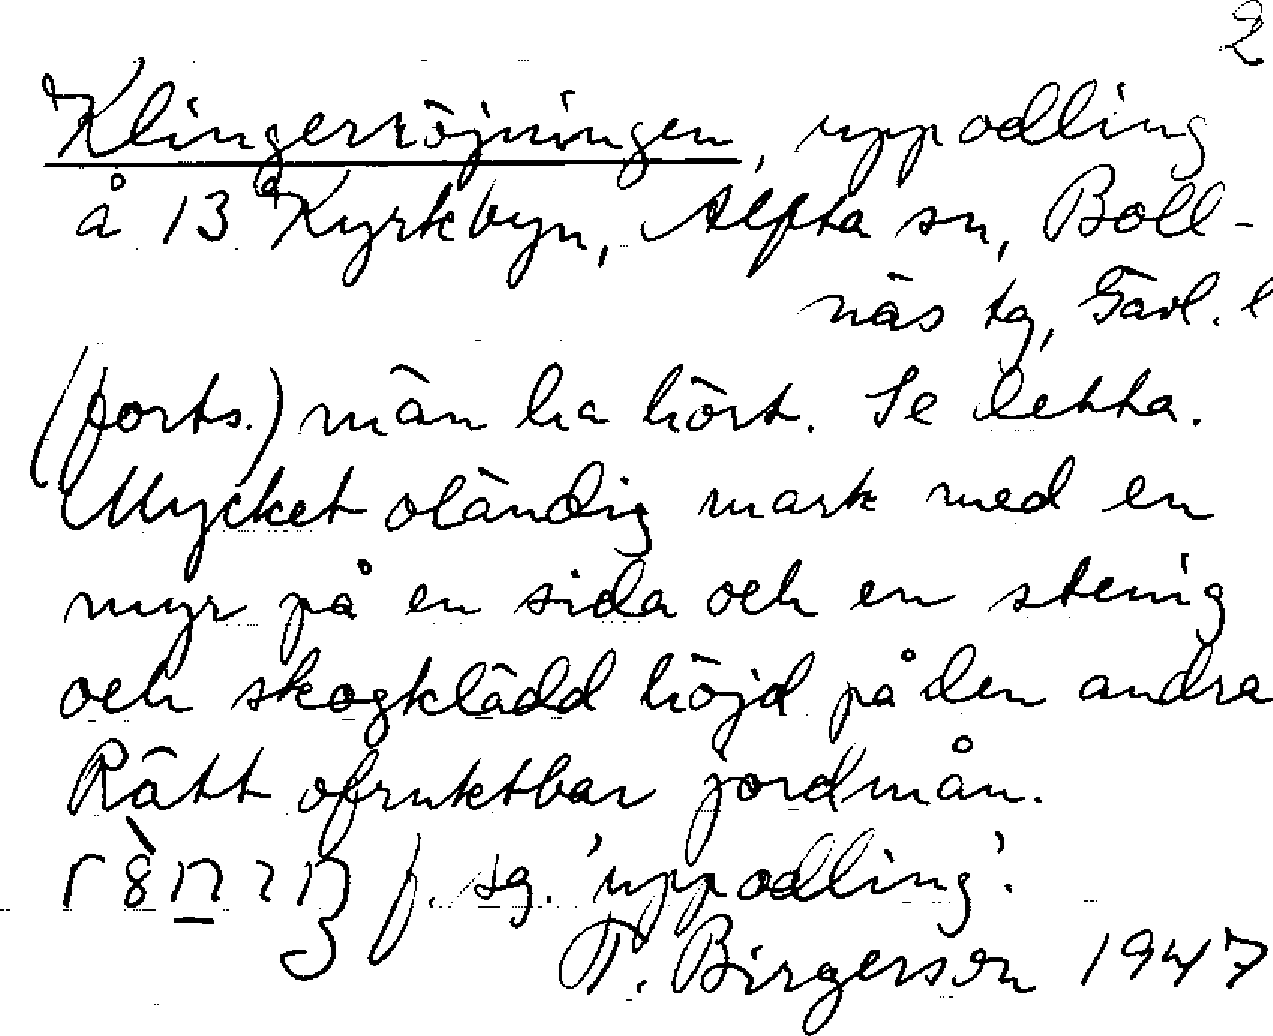 2
Klingerröjningen, uppodling
å 13 Kyrkbyn, Alfta sn, Boll-
näs tg, Gävl. l
(forts.) män ha hört. Se detta.
Mycket oländig mark med en
myr på en sida och en stenig
och skogklädd höjd på den andra
Rätt ofruktbar jordmån.
f. sg. 'uppodling'.
T. Birgerson 1947